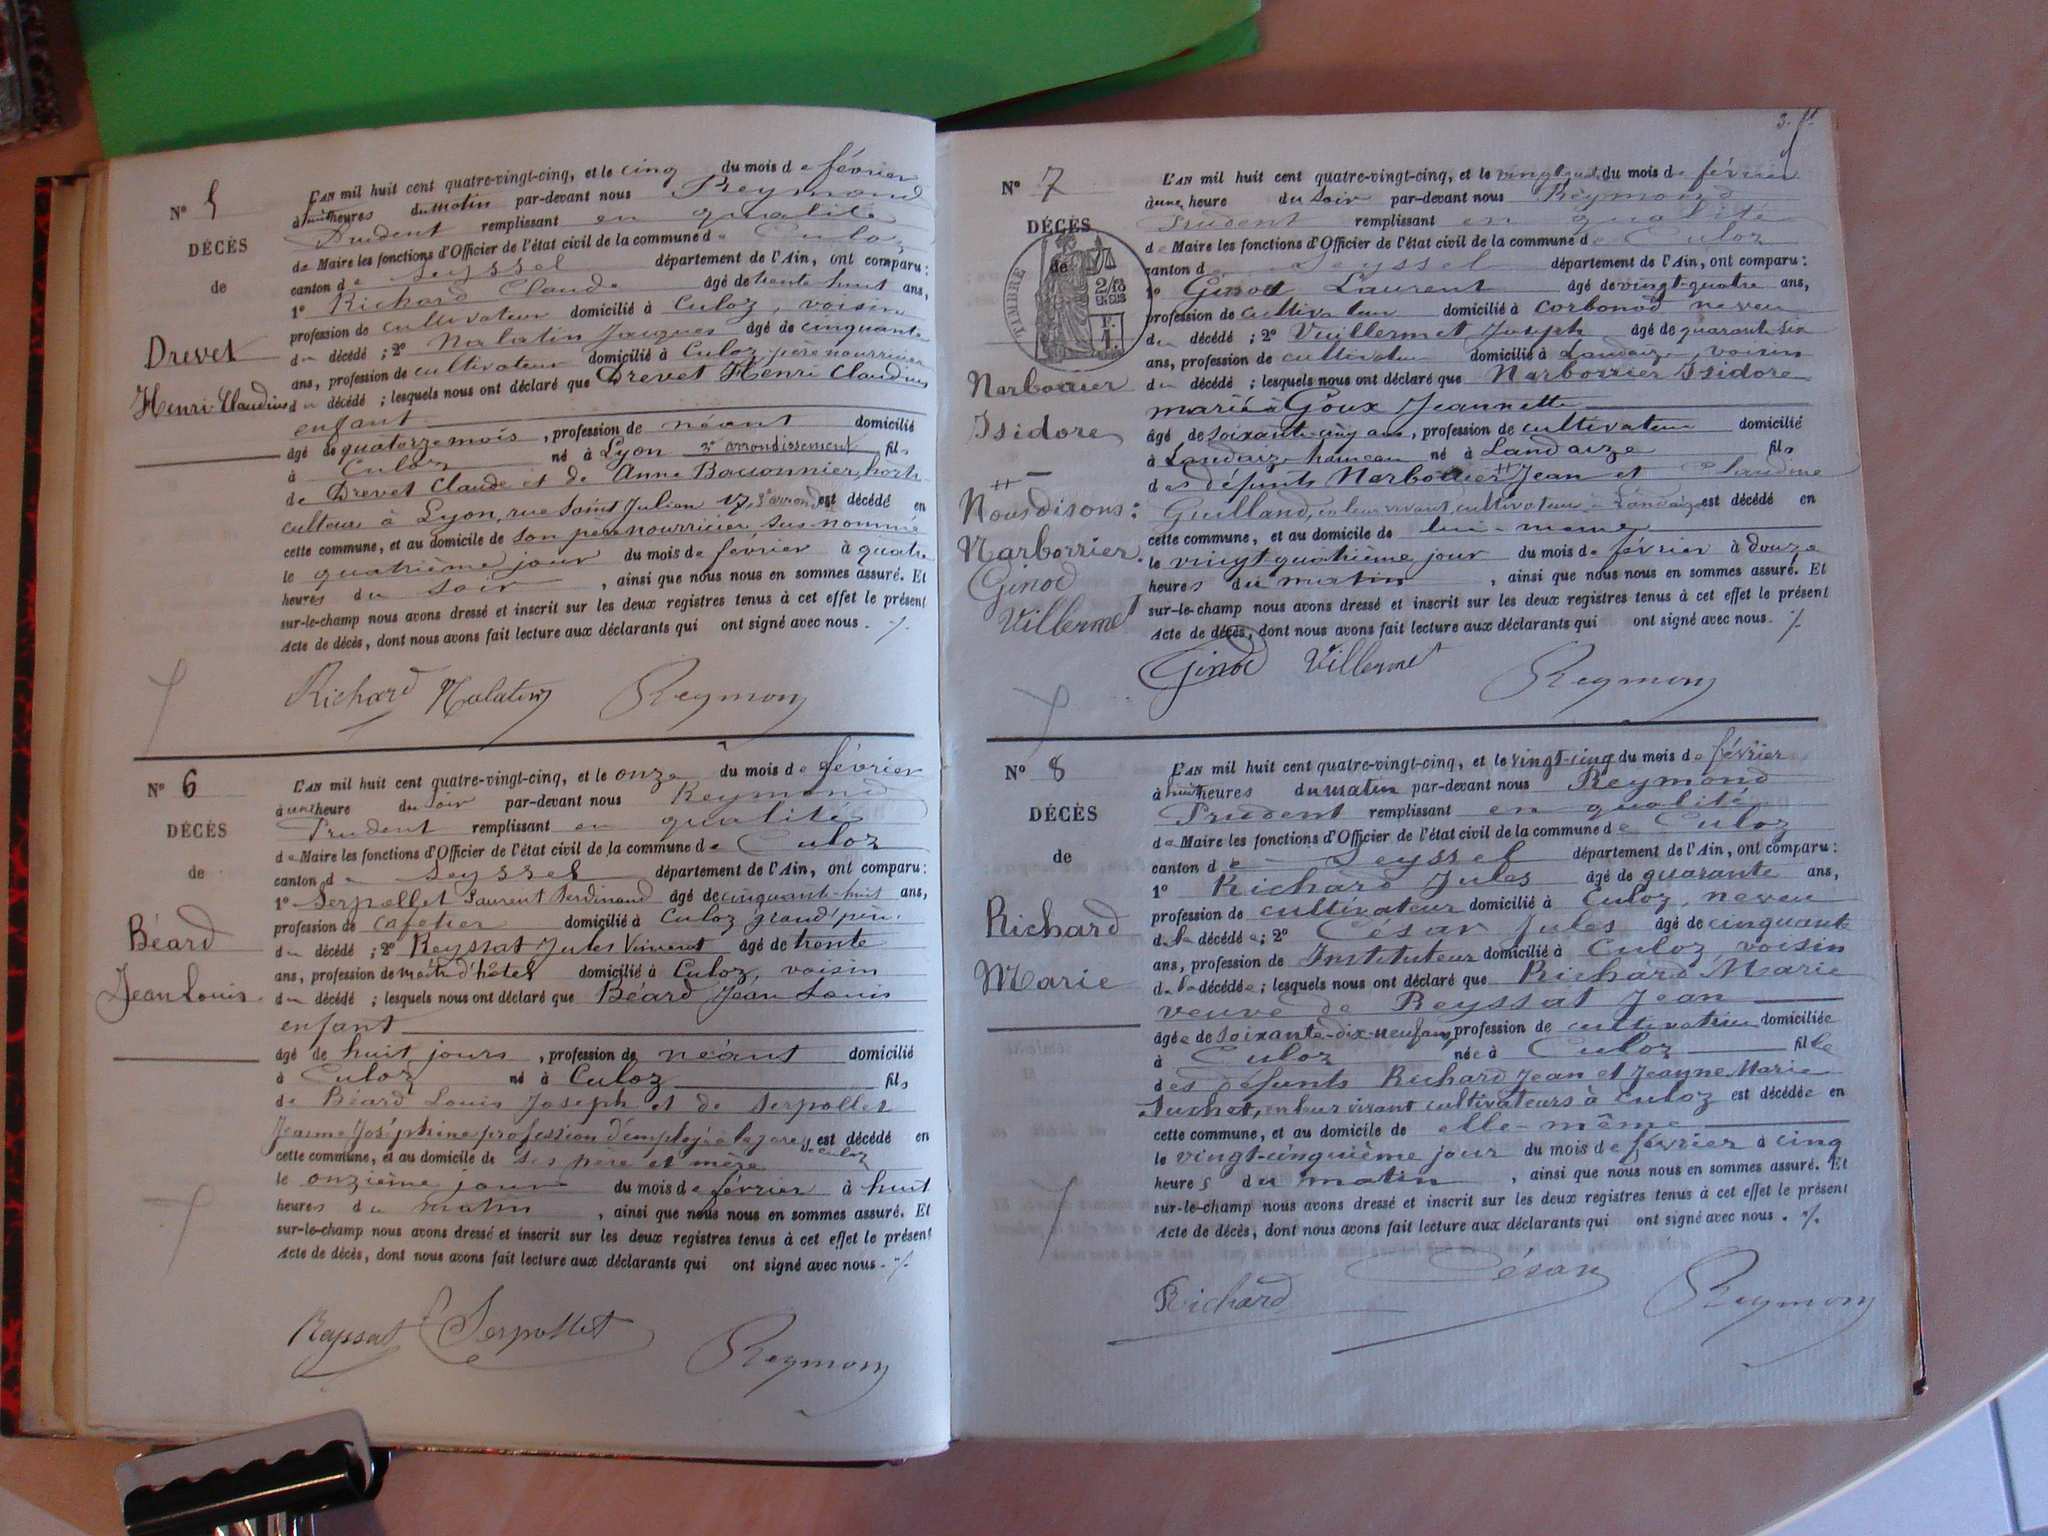 N° 5
DÉCÈS
de
Drevet
Henri Claudius
L'AN mil huit cent quatre-vingt-cinq, et le cinq du mois de février
à huit heures du matin par-devant nous Reymond
Prudent remplissant en qualité
de Maire les fonctions d'Officier de l'état civil de la commune de Culoz
canton de Seyssel département de l'Ain, ont comparu :
1° Richard Claude âgé de trente huit ans,
profession de cultivateur domicilié à Culoz, voisin
du décédé ; 2° Malatin Jacques âgé de cinquante
ans, profession de cultivateur domicilié à Culoz, père nourricier
du décédé ; lesquels nous ont déclaré que Drevet Henri Claudius
enfant
âgé de quatorze mois, profession de néant domicilié
à Culoz né à Lyon 3e arrondissement fils
de Drevet Claude et de Anne Bouonnier, horti-
culteurs à Lyon, rue Saint Julien 17, arrond est décédé en
cette commune, et au domicile de son père nourricier sus-nommé
le quatrième jour du mois de février à quatre
heures du soir, ainsi que nous nous en sommes assuré. Et
sur-le-champ nous avons dressé et inscrit sur les deux registres tenus à cet effet le présent
Acte de décès, dont nous avons fait lecture aux déclarants qui ont signé avec nous. ./.
Richard Malatin Reymond
N° 6
DÉCÈS
de
Béard
Jean Louis
L'AN mil huit cent quatre-vingt-cinq, et le onze du mois de février
à une heure du soir par-devant nous Reymond
Prudent remplissant en qualité
de Maire les fonctions d'Officier de l'état civil de la commune de Culoz
canton de Seyssel département de l'Ain, ont comparu :
1° Serpollet Laurent Ferdinand âgé de cinquante-huit ans,
profession de cafetier domicilié à Culoz grand'père
du décédé ; 2° Reyssat Jules Vincent âgé de trente
ans, profession de maître d'hôtel domicilié à Culoz, voisin
du décédé ; lesquels nous ont déclaré que Béard Jean Louis
enfant
âgé de huit jours, profession de néant domicilié
à Culoz né à Culoz fils
de Béard Louis Joseph et de Serpollet
Jeanne Joséphine profession d'employé à la gare est décédé en
de Culoz
cette commune, et au domicile de ses père et mère
le onzième jour du mois de février à huit
heures du matin, ainsi que nous nous en sommes assuré. Et
sur-le-champ nous avons dressé et inscrit sur les deux registres tenus à cet effet le présent
Acte de décès, dont nous avons fait lecture aux déclarants qui ont signé avec nous. ./.
Reyssat Serpollet Reymond
3.
N° 7
DÉCÈS
de
TIMBRE
Narborrier
Isidore
Nous disons :
Narborrier.
Ginod
Villermet
L'AN mil huit cent quatre-vingt-cinq, et le du mois de février
à une heure du soir par-devant nous Reymond
Prudent remplissant en qualité
de Maire les fonctions d'Officier de l'état civil de la commune de Culoz
canton de Seyssel département de l'Ain, ont comparu :
1° Ginod Laurent âgé de vingt-quatre ans,
profession de cultivateur domicilié à Corbonod neveu
du décédé ; 2° Vuillermet Joseph âgé de quarante six
ans, profession de cultivateur domicilié à Landaize, voisin
du décédé ; lesquels nous ont déclaré que Narborrier Isidore
marié à Goux Jeannette
âgé de soixante-cinq ans, profession de cultivateur domicilié
à Landaize hameau né à Landaize fils
des défunts Narborrier Jean et Claudine
Guilland, en leur vivant cultivateurs à Landaize est décédé en
cette commune, et au domicile de lui-même
le vingt quatrième jour du mois de février à douze
heures du matin, ainsi que nous nous en sommes assuré. Et
sur-le-champ nous avons dressé et inscrit sur les deux registres tenus à cet effet le présent
Acte de décès, dont nous avons fait lecture aux déclarants qui ont signé avec nous. ./.
Ginod Villermet Reymond
N° 8
DÉCÈS
de
Richard
Marie
L'AN mil huit cent quatre-vingt-cinq, et le vingt-cinq du mois de février
à huit heures du matin par-devant nous Reymond
Prudent remplissant en qualité
de Maire les fonctions d'Officier de l'état civil de la commune de Culoz
canton de Seyssel département de l'Ain, ont comparu :
1° Richard Jules âgé de quarante ans,
profession de cultivateur domicilié à Culoz, neveu
de la décédée ; 2° César Jules âgé de cinquante
ans, profession de Instituteur domicilié à Culoz, voisin
de la décédée ; lesquels nous ont déclaré que Richard Marie
veuve de Reyssat Jean
âgée de soixante-dix-neuf ans, profession de cultivatrice domiciliée
à Culoz née à Culoz fille
des défunts Richard Jean et Jeanne Marie
Suchet, en leur vivant cultivateurs à Culoz est décédée en
cette commune, et au domicile de elle-même
le vingt-cinquième jour du mois de février à cinq
heures du matin, ainsi que nous nous en sommes assuré. Et
sur-le-champ nous avons dressé et inscrit sur les deux registres tenus à cet effet le présent
Acte de décès, dont nous avons fait lecture aux déclarants qui ont signé avec nous. ./.
Richard César Reymond